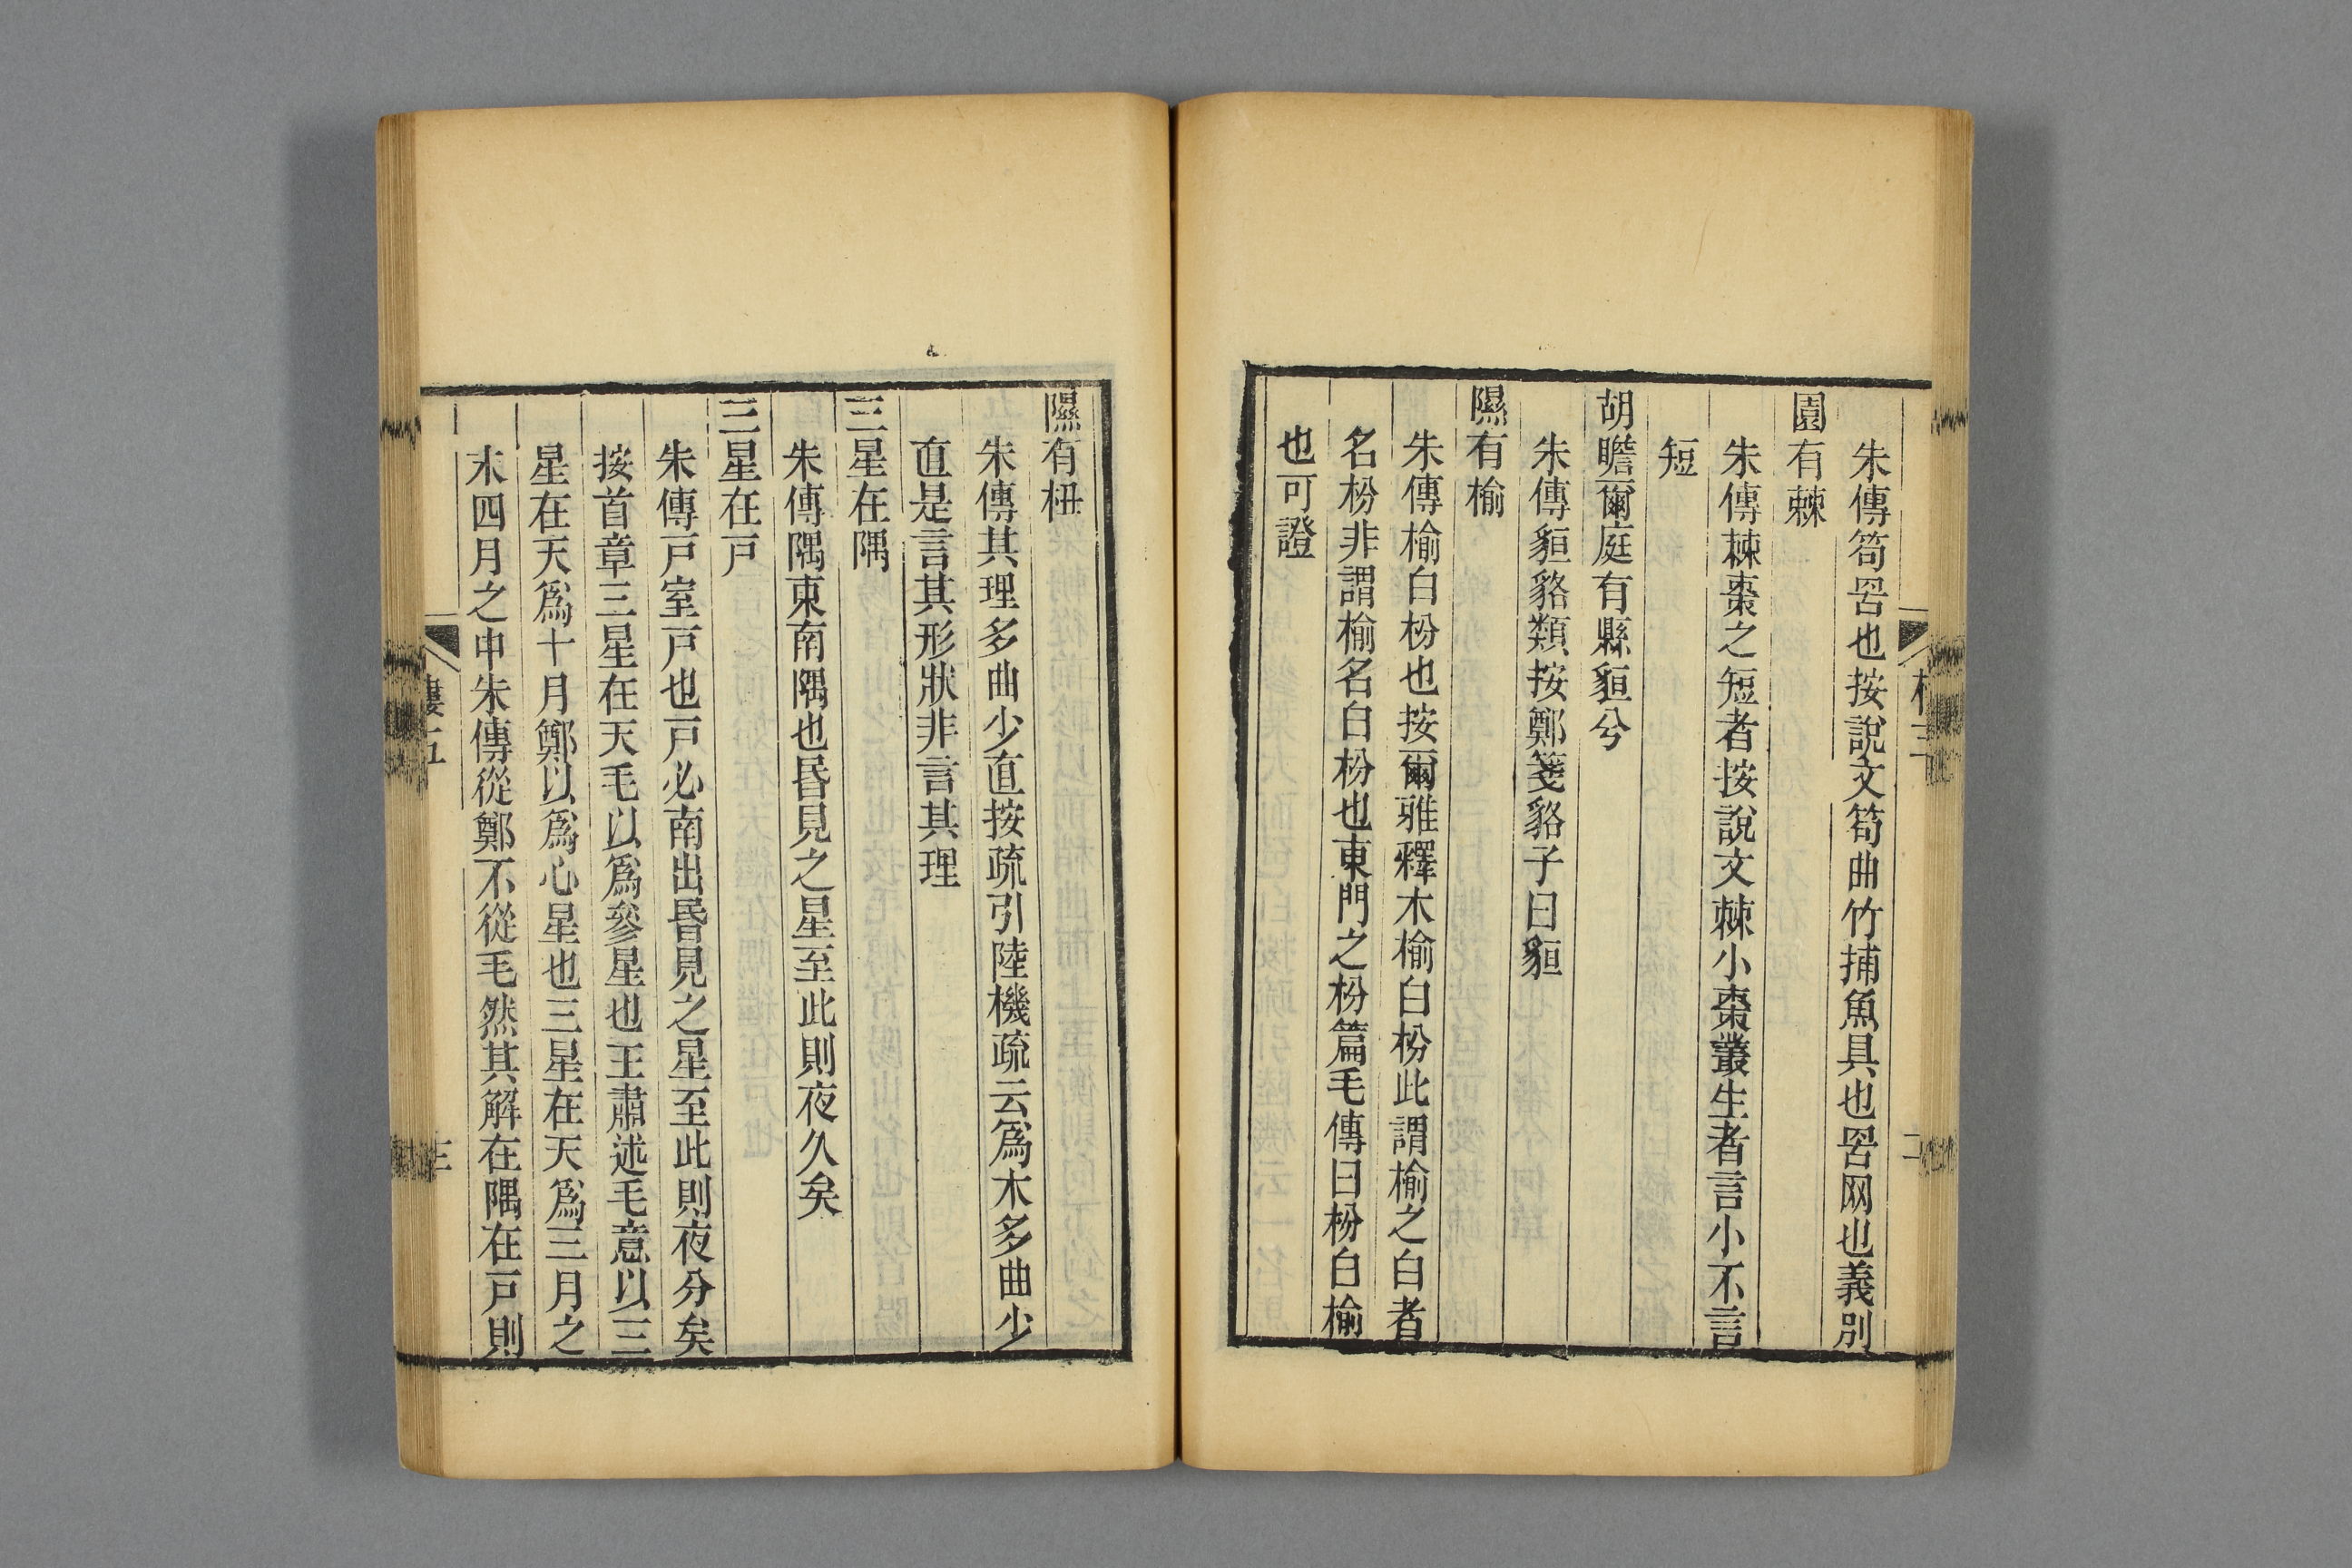 朱傳笱罟也按說文笱曲竹捕魚具也罟网也義別
園有棘
朱傳棘棗之短者按說文棘小棗叢生者言小不言
短
胡瞻爾庭有縣貆兮
朱傳貆貉類按鄭箋貉子曰貆
隰有榆
朱傳榆白枌也按爾雅釋木榆白枌此謂榆之白者
名枌非謂榆名白枌也東門之枌篇毛傳曰枌白榆
也可證
隰有杻
朱傳其理多曲少直按疏引陸機疏云爲木多曲少
直是言其形狀非言其理
三星在隅
朱傳隅東南隅也昏見之星至此則夜久矣
三星在戸
朱傳戸室戸也戸必南出昏見之星至此則夜分矣
按首章三星在天毛以爲參星也王肅述毛意以三
星在天爲十月鄭以爲心星也三星在天爲三月之
末四月之中朱傳從鄭不從毛然其解在隅在戸則